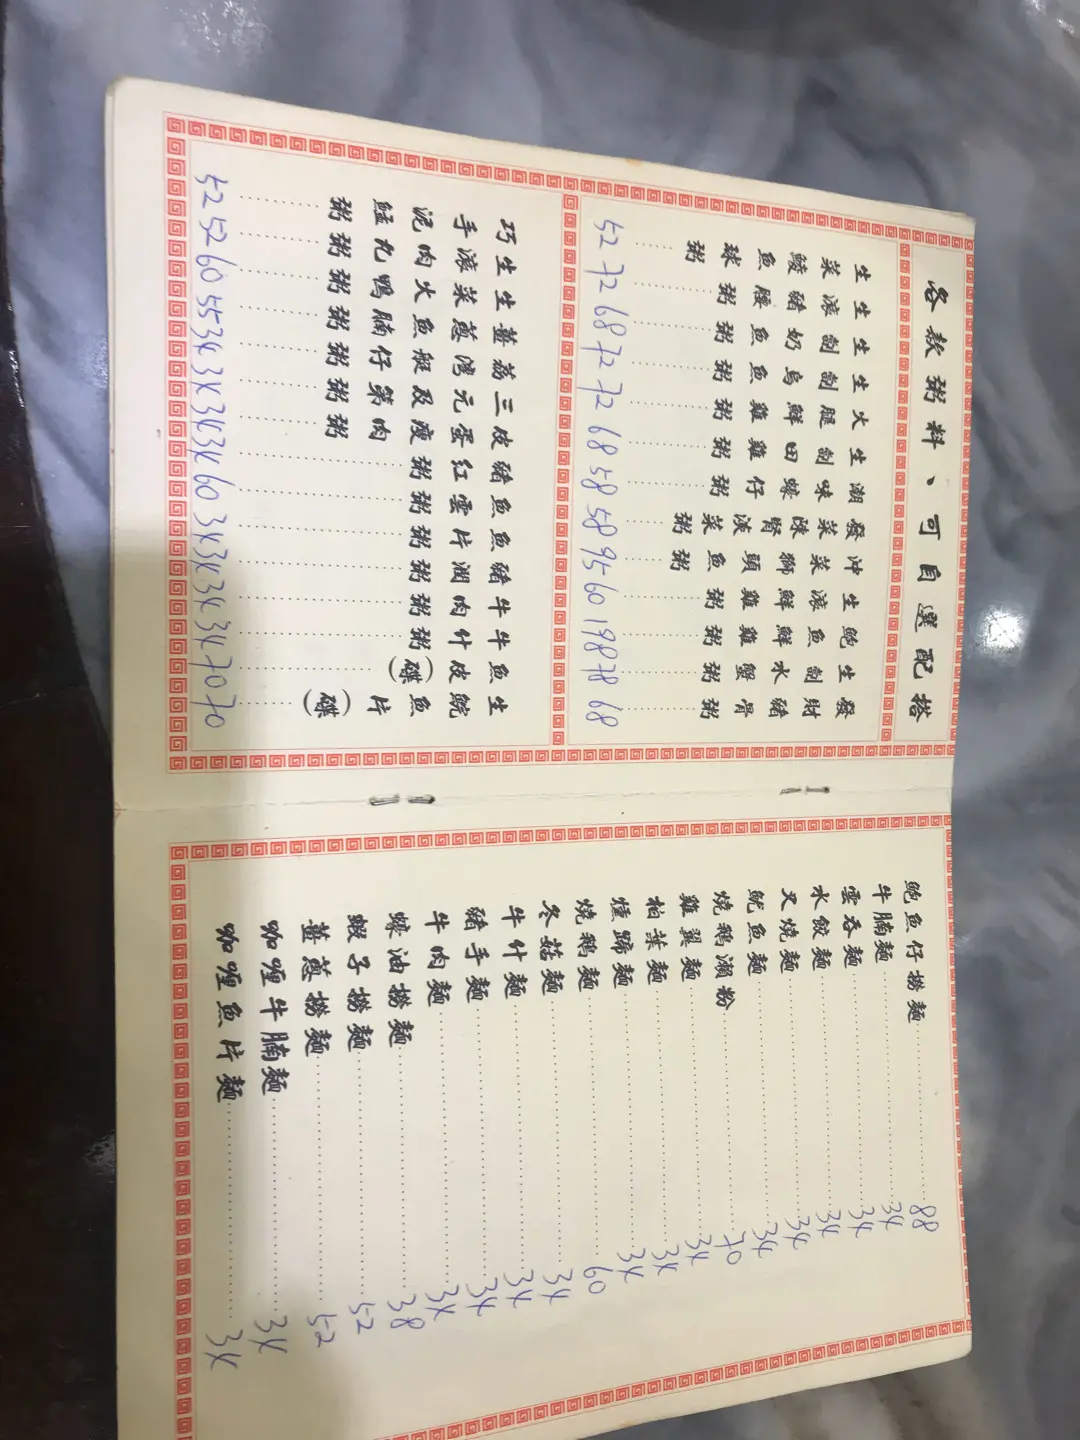 各款粥料、可自選配搭
發財豬骨粥 68
生制水蟹粥 78
鮑魚鮮雞粥 198
生滾鮮雞粥 60
沖菜獅頭魚粥 95
發菜陳腎淡菜粥 58
潮味蠔仔粥 58
生制田雞粥 68
火腿鮮雞粥 72
生制烏魚粥 72
生制奶魚粥 68
生滾豬腰粥 72
生菜鯪魚球粥 52
生鯇魚片(碟) 70
魚皮(碟) 70
牛什粥 34
牛肉粥 34
豬潤粥 34
魚片粥 34
魚雲粥 60
豬紅粥 34
皮蛋瘦肉粥 34
三元及第粥 34
荔灣艇仔粥 34
薑蔥魚腩粥 55
生菜火鴨粥 60
生滾肉丸粥 52
巧手泥鯭粥 52
鮑魚仔撈麵 88
牛腩麵 34
雲吞麵 34
水餃麵 34
叉燒麵 34
魷魚麵 34
燒鵝瀨粉 70
雞翼麵 34
柏葉麵 34
燻蹄麵 34
燒鵝麵 60
冬菇麵 34
牛什麵 34
豬手麵 34
牛肉麵 34
蠔油撈麵 38
蝦子撈麵 52
薑蔥撈麵 52
咖喱牛腩麵 34
咖喱魚片麵 34